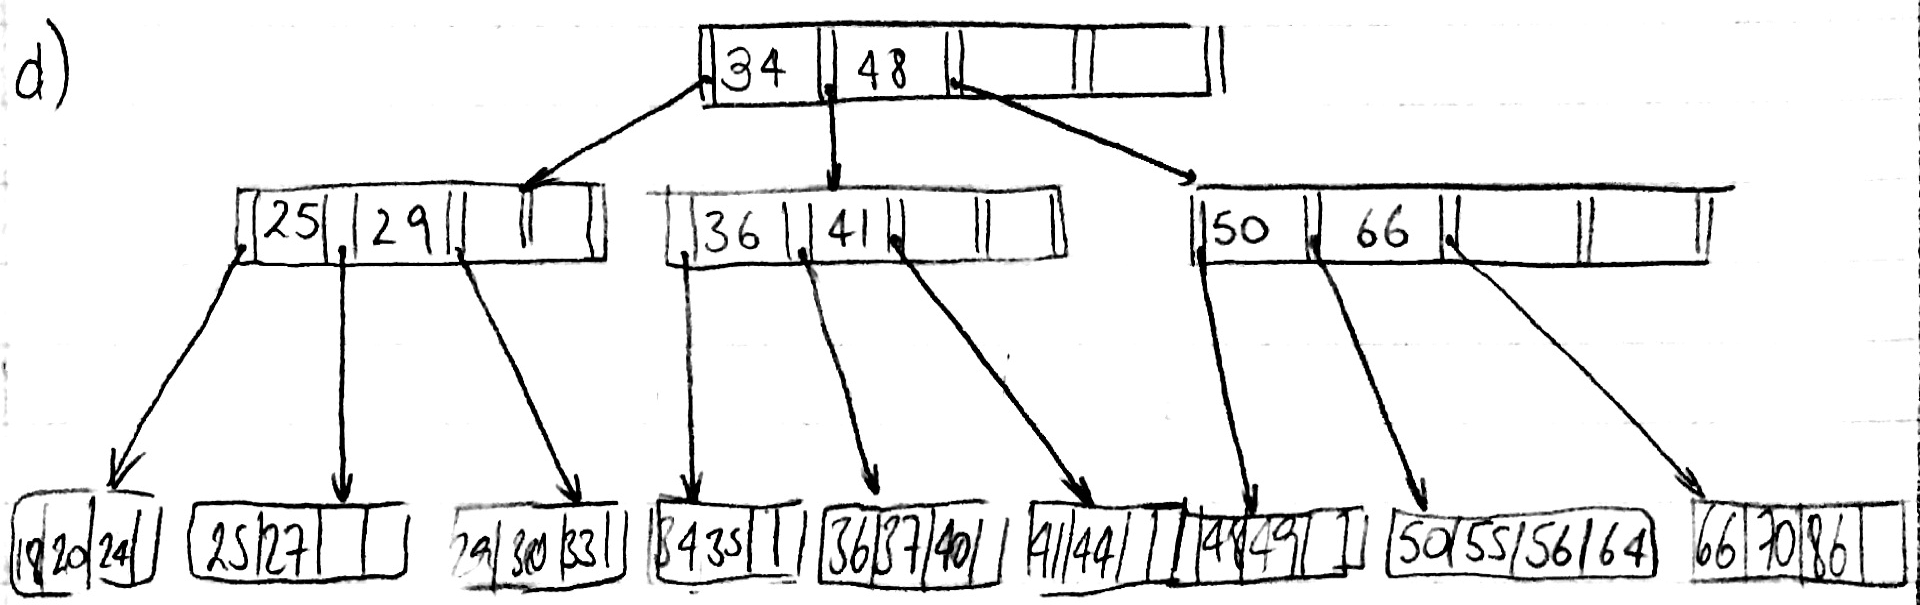 d)
34 48
25 29 36 41 50 66
18 20 24 25 27 29 30 33 34 35 36 37 40 41 44 48 49 50 55 56 64 66 70 86